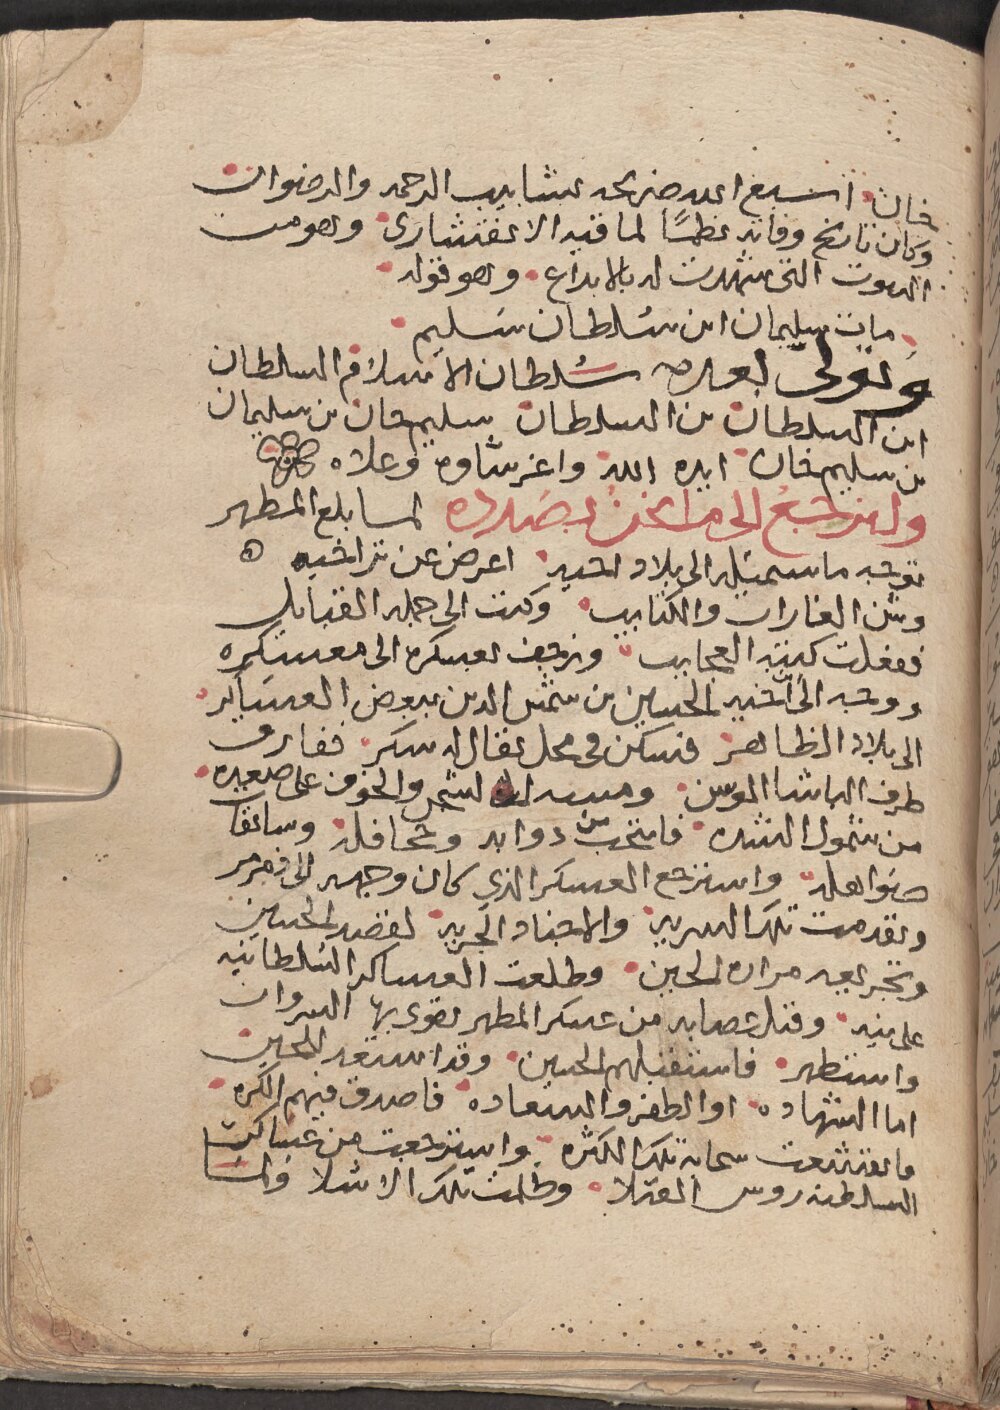 خان اسبغ الله ضريحه بشابيب الرحمه والرضوان
وكان تاريخ وفاته نظمًا لما فيه الاغتشارى وهو من
البيوت التي شهدت له بالابداع وهو قوله
مات سليمان ابن سلطان سليم
وتولى بعده سلطان الاسلام السلطان
ابن السلطان بن السلطان سليم خان بن سليمان
بن سليم خان ايده الله واعز شاوه وعلاه
ولنرجع الى ما نحن بصدده لما بلغ المطهر
توجه ما سمیله الى بلاد اخيه اعرض عن تراخيه
وشن الغارات والكتايب وكتب الى جمله القبايل
ففعلت كتبه العجايب وزحف بعسكره الى معسكره
ووجه الى اخيه الحسين بن شمس الدين ببعض العساكر
الى بلاد الظاهر فسكن في محل يقال له سكر ففارق
طرف الباشا الوسن والخوف على صعده
من شمول الشده فانتخب من دوابه وجحافله وسايقا
صواهله واسترجع العسكر الذي كان وجهه الى ذمرمر
وتقدمت تلك السريه والاجناد الجريه لقصد الحسين
وتجريعه مراره الحين وطلعت العساكر السلطانيه
على منبه وقتل عصابه من عسكر المطهر تقوى بها السروان
واستظهر فاستقبلهم الحسين وقد استعد للحين
اما الشهاده او الظفر والسعاده فاصدق فيهم الكره
فانقشعت سحابه تلك الكثره واسترجعت من عساكر
السلطنه روس القتلا وظلت تلك الاشلا ولما